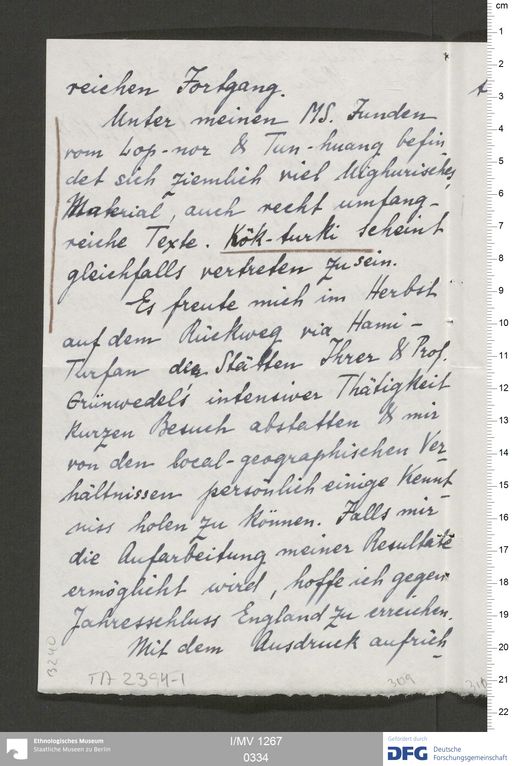 reichen Fortgang.
Unter meinen MS. Funden
vom Lop-nor & Tun-huang befin
det sich ziemlich viel Uighurisches
Material, auch recht umfang-
reiche Texte. Kök-turki scheint
gleichfalls vertreten zu sein.
Es freute mich im Herbst
auf dem Rückweg via Hami-
Turfan die Stätten Ihrer & Prof.
Grünwedel's intensiver Thätigkeit
kurzen Besuch abstatten & mir
von den local-geographischen Ver-
hältnissen persönlich einige Kennt-
niss holen zu können. Falls mir
die Aufarbeitung meiner Resultate
ermöglicht wird, hoffe ich gegen
Jahresschluss England zu erreichen.
Mit dem Ausdruck aufrich-
3240
TA 2394-1
309
310
cm
1
2
3
4
5
6
7
8
9
10
11
12
13
14
15
16
17
18
19
20
21
22
Ethnologisches Museum
Staatliche Museen zu Berlin
I/MV 1267
0334
Gefördert durch
DFG Deutsche
Forschungsgemeinschaft